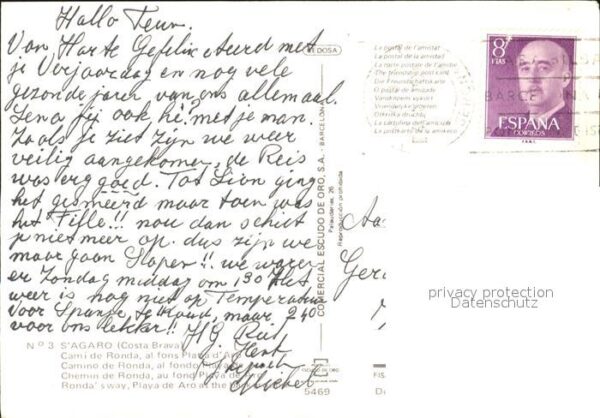 Hallo Teun.
Van Harte Gefeliciteerd met
je Verjaardag en nog vele
gezonde jaren van ons allemaal.
Lena jij ook hé! met je man.
Zoals je ziet zijn we weer
veilig aangekomen, de Reis
was erg goed. Tot Lion ging
het gesmeerd maar toen was
het Fille!! nou dan schiet
je niet meer op. dus zijn we
maar gaan slapen!! we waren
er Zondag middag om 1.30 Het
weer is nog niet op Temperatuur
Voor Spanje te koud, maar 240
voor ons lekker!!
Michel
Nº 3 S'AGARO (Costa Brava)
Camí de Ronda, al fons Platja d'Aro
Camino de Ronda, al fondo Playa
Chemin de Ronda, au fond Playa de Aro
Ronda's way, Playa de Aro at the
EDOSA
COMERCIAL ESCUDO DE ORO, S.A. - BARCELONA
Palaudarias, 26
Reproducción prohibida
ESCUDO DE ORO
5469
La postal de l'amistat
La postal de la amistad
La carte postale de l'amitié
The friendship post card
Die Freundschaftskarte
O postal da amizade
Vänskapens vykort
Vriendenkaarten
La cartolina dell'amicizia
8
PTAS
ESPAÑA
CORREOS
BARCELON
Aa
FIS
privacy protection
Datenschutz